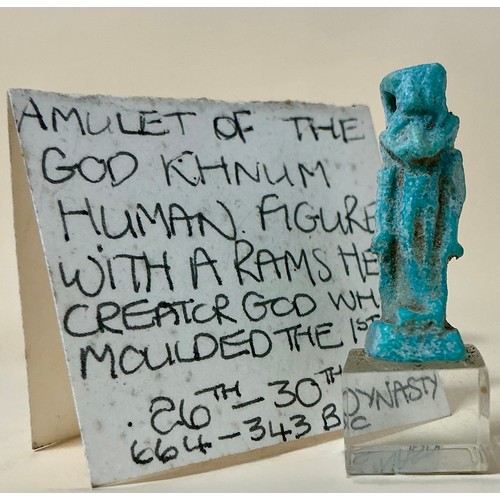 AMULET OF THE
GOD KHNUM
HUMAN. FIGURE
WITH A RAMS HE
CREATOR GOD WH
MOULDED THE 1ST
. 26TH-30TH DYNASTY
664-343 BC